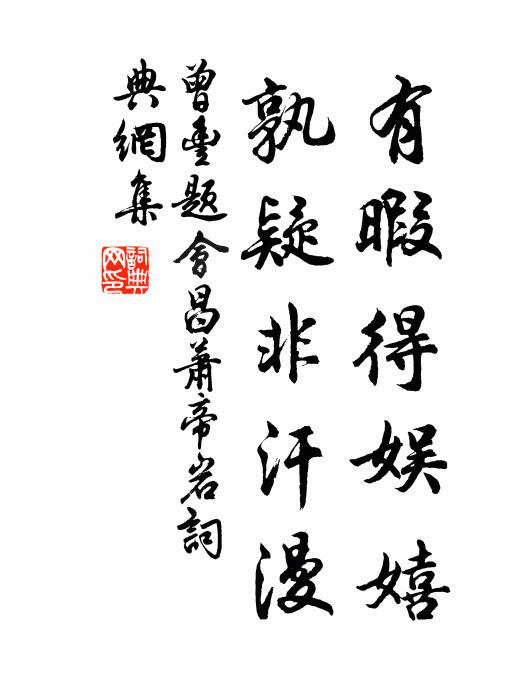 有暇得娱嬉
孰疑非汗漫
曾丰题會昌萧帝岩詞
典網集
詞典网印